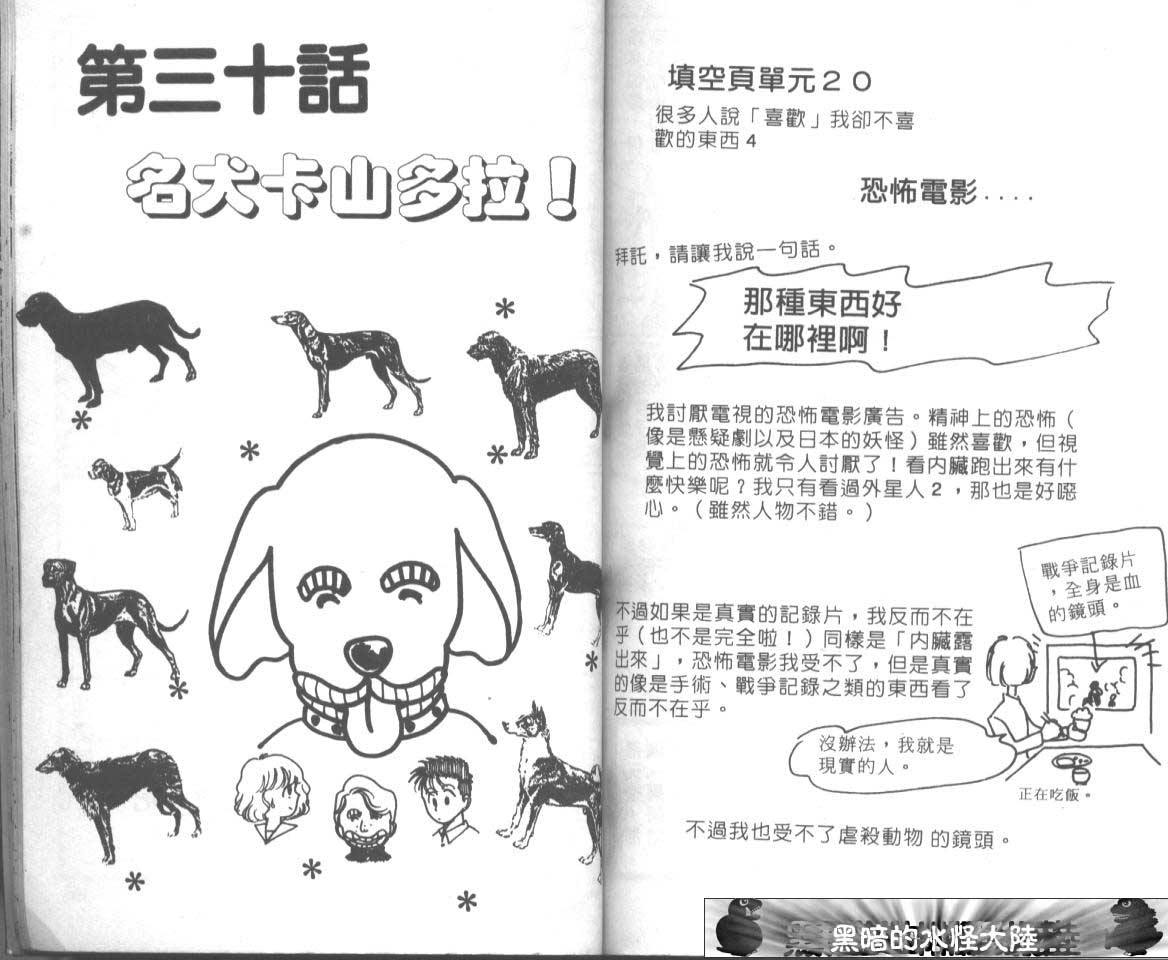 第三十話
名犬卡山多拉！
填空頁單元２０
很多人說「喜歡」我卻不喜
歡的東西４
恐怖電影....
拜託，請讓我說一句話。
那種東西好
在哪裡啊！
我討厭電視的恐怖電影廣告。精神上的恐怖（
像是懸疑劇以及日本的妖怪）雖然喜歡，但視
覺上的恐怖就令人討厭了！看內臟跑出來有什
麼快樂呢？我只有看過外星人２，那也是好噁
心。（雖然人物不錯。）
戰爭記錄片
，全身是血
的鏡頭。
不過如果是真實的記錄片，我反而不在
乎（也不是完全啦！）同樣是「內臟露
出來」，恐怖電影我受不了，但是真實
的像是手術、戰爭記錄之類的東西看了
反而不在乎。
沒辦法，我就是
現實的人。
正在吃飯。
不過我也受不了虐殺動物的鏡頭。
黑暗的水怪大陸